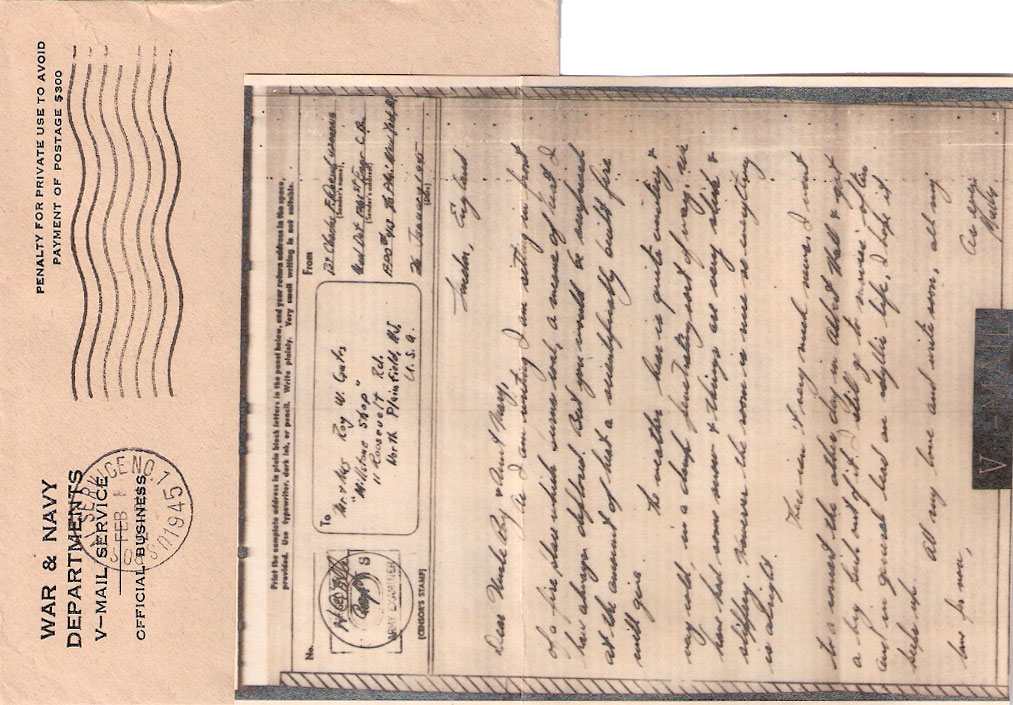 PENALTY FOR PRIVATE USE TO AVOID
PAYMENT OF POSTAGE $300
WAR & NAVY
DEPARTMENTS
V-MAIL SERVICE
OFFICIAL BUSINESS
FEB
1945
Print the complete address in plain block letters in the panel below, and your return address in the space
provided. Use typewriter, dark ink, or pencil. Write plainly. Very small writing is not suitable.
No.
[CENSOR'S STAMP]
ARMY EXAMINER
To
Mr. & Mrs Roy W.
"Millstone Shop"
Roosevelt Rd.
North Plainfield, N.J.
U.S.A.
From
(Sender's name)
(Sender's address)
(Date)
London, England
Dear Uncle Roy & Aunt Mary,
As I am writing I am sitting in front
of a fire place which burns coal, a means of heat I
have always deplored. But you would be surprised
at the amount of heat a scientifically built fire
will give.
The weather here is quite wintery &
very cold, in a damp penetrating sort of way. We
have had some snow & things are very slick &
slippy. However the room is nice so everything
is alright.
There isn't very much news. I went
to a concert the other day in Albert Hall & got
a big kick out of it. I still go to movies often
and in general lead an idyllic life. I hope it
keeps up.
All my love and write soon, all my
love for now,
As ever
V-MAIL